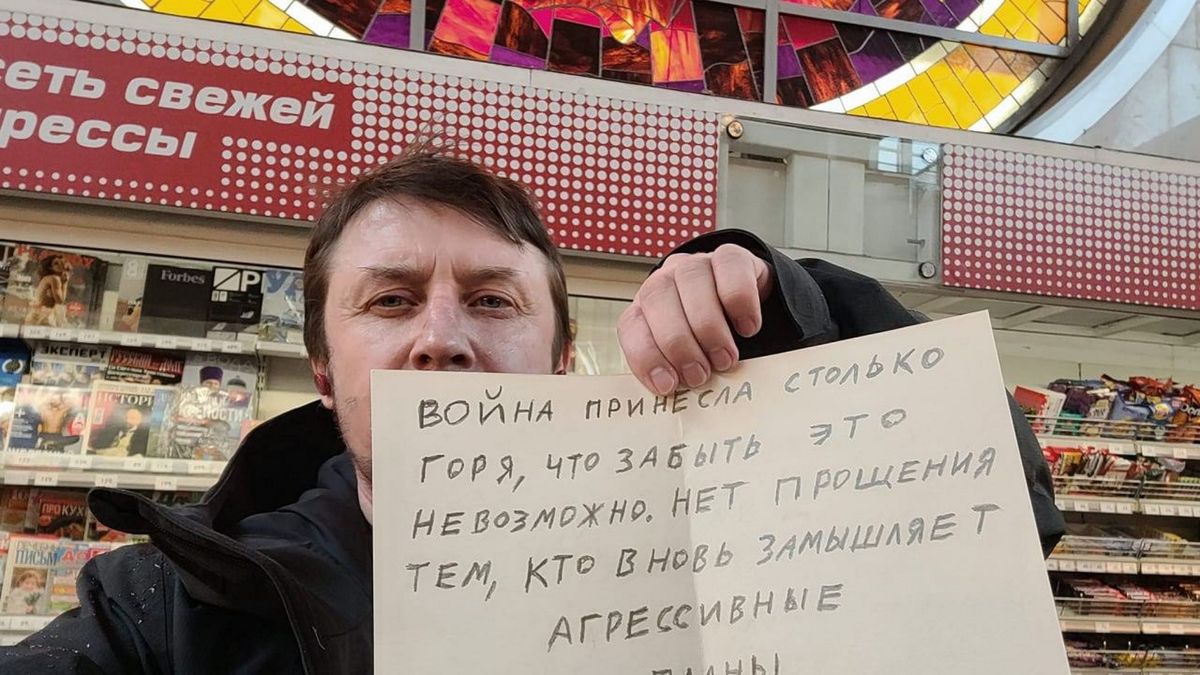 сеть свежей
прессы
Forbes
ЭКСПЕРТ
ПРО КУХ
ВОЙНА ПРИНЕСЛА СТОЛЬКО
ГОРЯ, ЧТО ЗАБЫТЬ ЭТО
НЕВОЗМОЖНО. НЕТ ПРОЩЕНИЯ
ТЕМ, КТО ВНОВЬ ЗАМЫШЛЯЕТ
АГРЕССИВНЫЕ
ПЛАНЫ